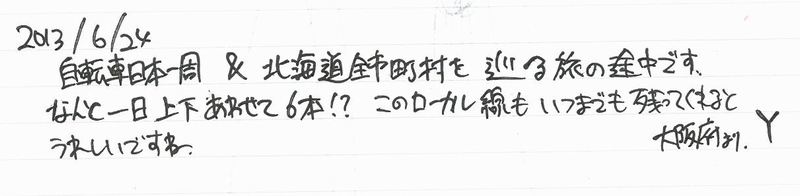 2013/6/24
自転車日本一周 & 北海道全市町村を 巡る旅の途中です。
なんと一日上下あわせて6本!? このローカル線も いつまでも 残ってくれると
うれしいですね。
大阪府より。 Y